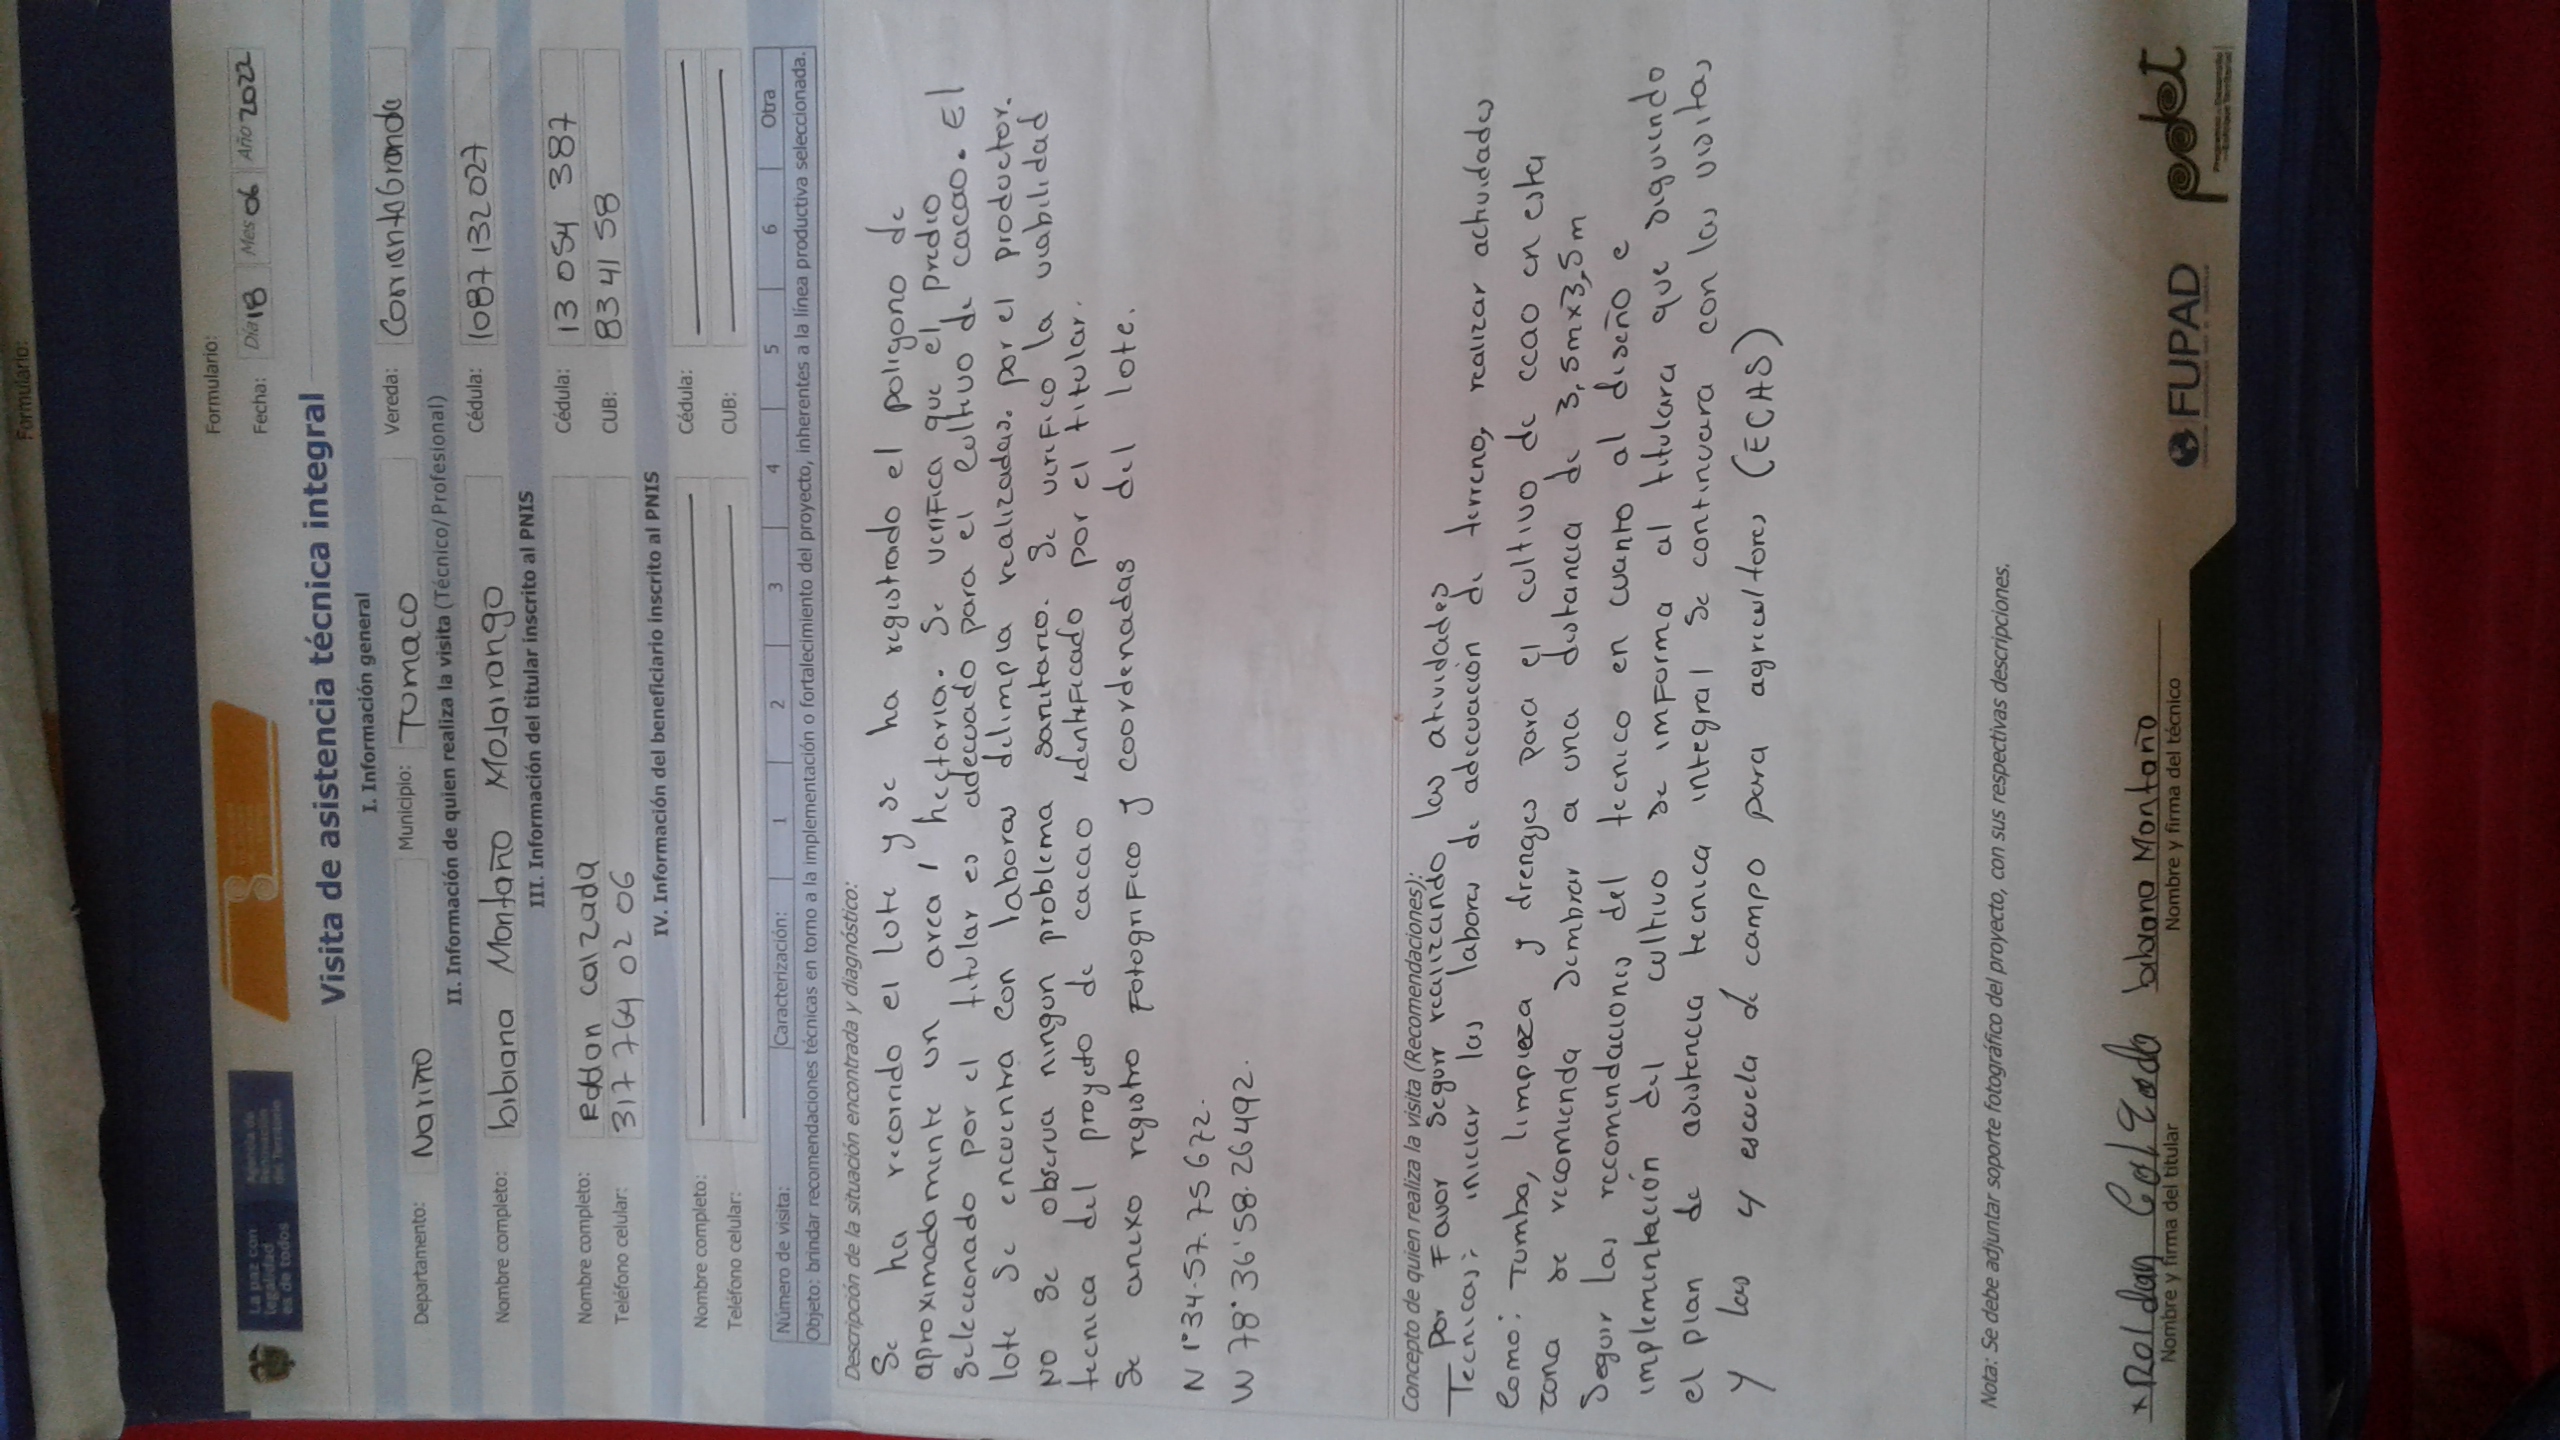 Formulario:
Formulario:
La paz con
legalidad
es de todos
Agencia de
Renovación
del Territorio
Fecha: Día 18 Mes 06 Año 2022
Visita de asistencia técnica integral
I. Información general
Departamento: Nariño Municipio: Tumaco Vereda: CorrienteGrande
II. Información de quien realiza la visita (Técnico/Profesional)
Nombre completo: bibiana Montaño Mosairango Cédula: 1087132027
III. Información del titular inscrito al PNIS
Nombre completo: Roldan calzada Cédula: 13 054 387
Teléfono celular: 317 764 02 06 CUB: 83 41 58
IV. Información del beneficiario inscrito al PNIS
Nombre completo: Cédula:
Teléfono celular: CUB:
Número de visita: Caracterización: 1 2 3 4 5 6 Otra
Objeto: brindar recomendaciones técnicas en torno a la implementación o fortalecimiento del proyecto, inherentes a la línea productiva seleccionada.
Descripción de la situación encontrada y diagnóstico:
Se ha recorrido el lote y se ha registrado el poligono de
aproximadamente un area 1 hectaria. Se verifica que el predio
seleccionado por el titular es adecuado para el cultivo de cacao. El
lote se encuentra con labores delimpia realizadas por el productor.
No se observa ningun problema sanitario. Se verifico la viabilidad
tecnica del proyecto de cacao identificado por el titular.
Se anexo registro fotografico y coordenadas del lote.
N 1°34.57.75672.
W 78°36'58.26492.
Concepto de quien realiza la visita (Recomendaciones):
Por Favor seguir realizando las atividades
Tecnicas: iniciar las labores de adecuación de terreno, realizar actividades
Como: Tumba, limpieza y drenajes para el cultivo de ccao en esta
zona se recomienda sembrar a una distancia de 3,5mx3,5m
Seguir las recomendaciones del tecnico en cuanto al diseño e
implementación del cultivo se informa al titulara que siguiendo
el plan de asistencia tecnica integral se continuara con las visitas
y las y escuela de campo para agricultores (ECAS)
Nota: Se debe adjuntar soporte fotográfico del proyecto, con sus respectivas descripciones.
x Roldan Calzada bibiana Montaño
Nombre y firma del titular Nombre y firma del técnico
FUPAD
pdet